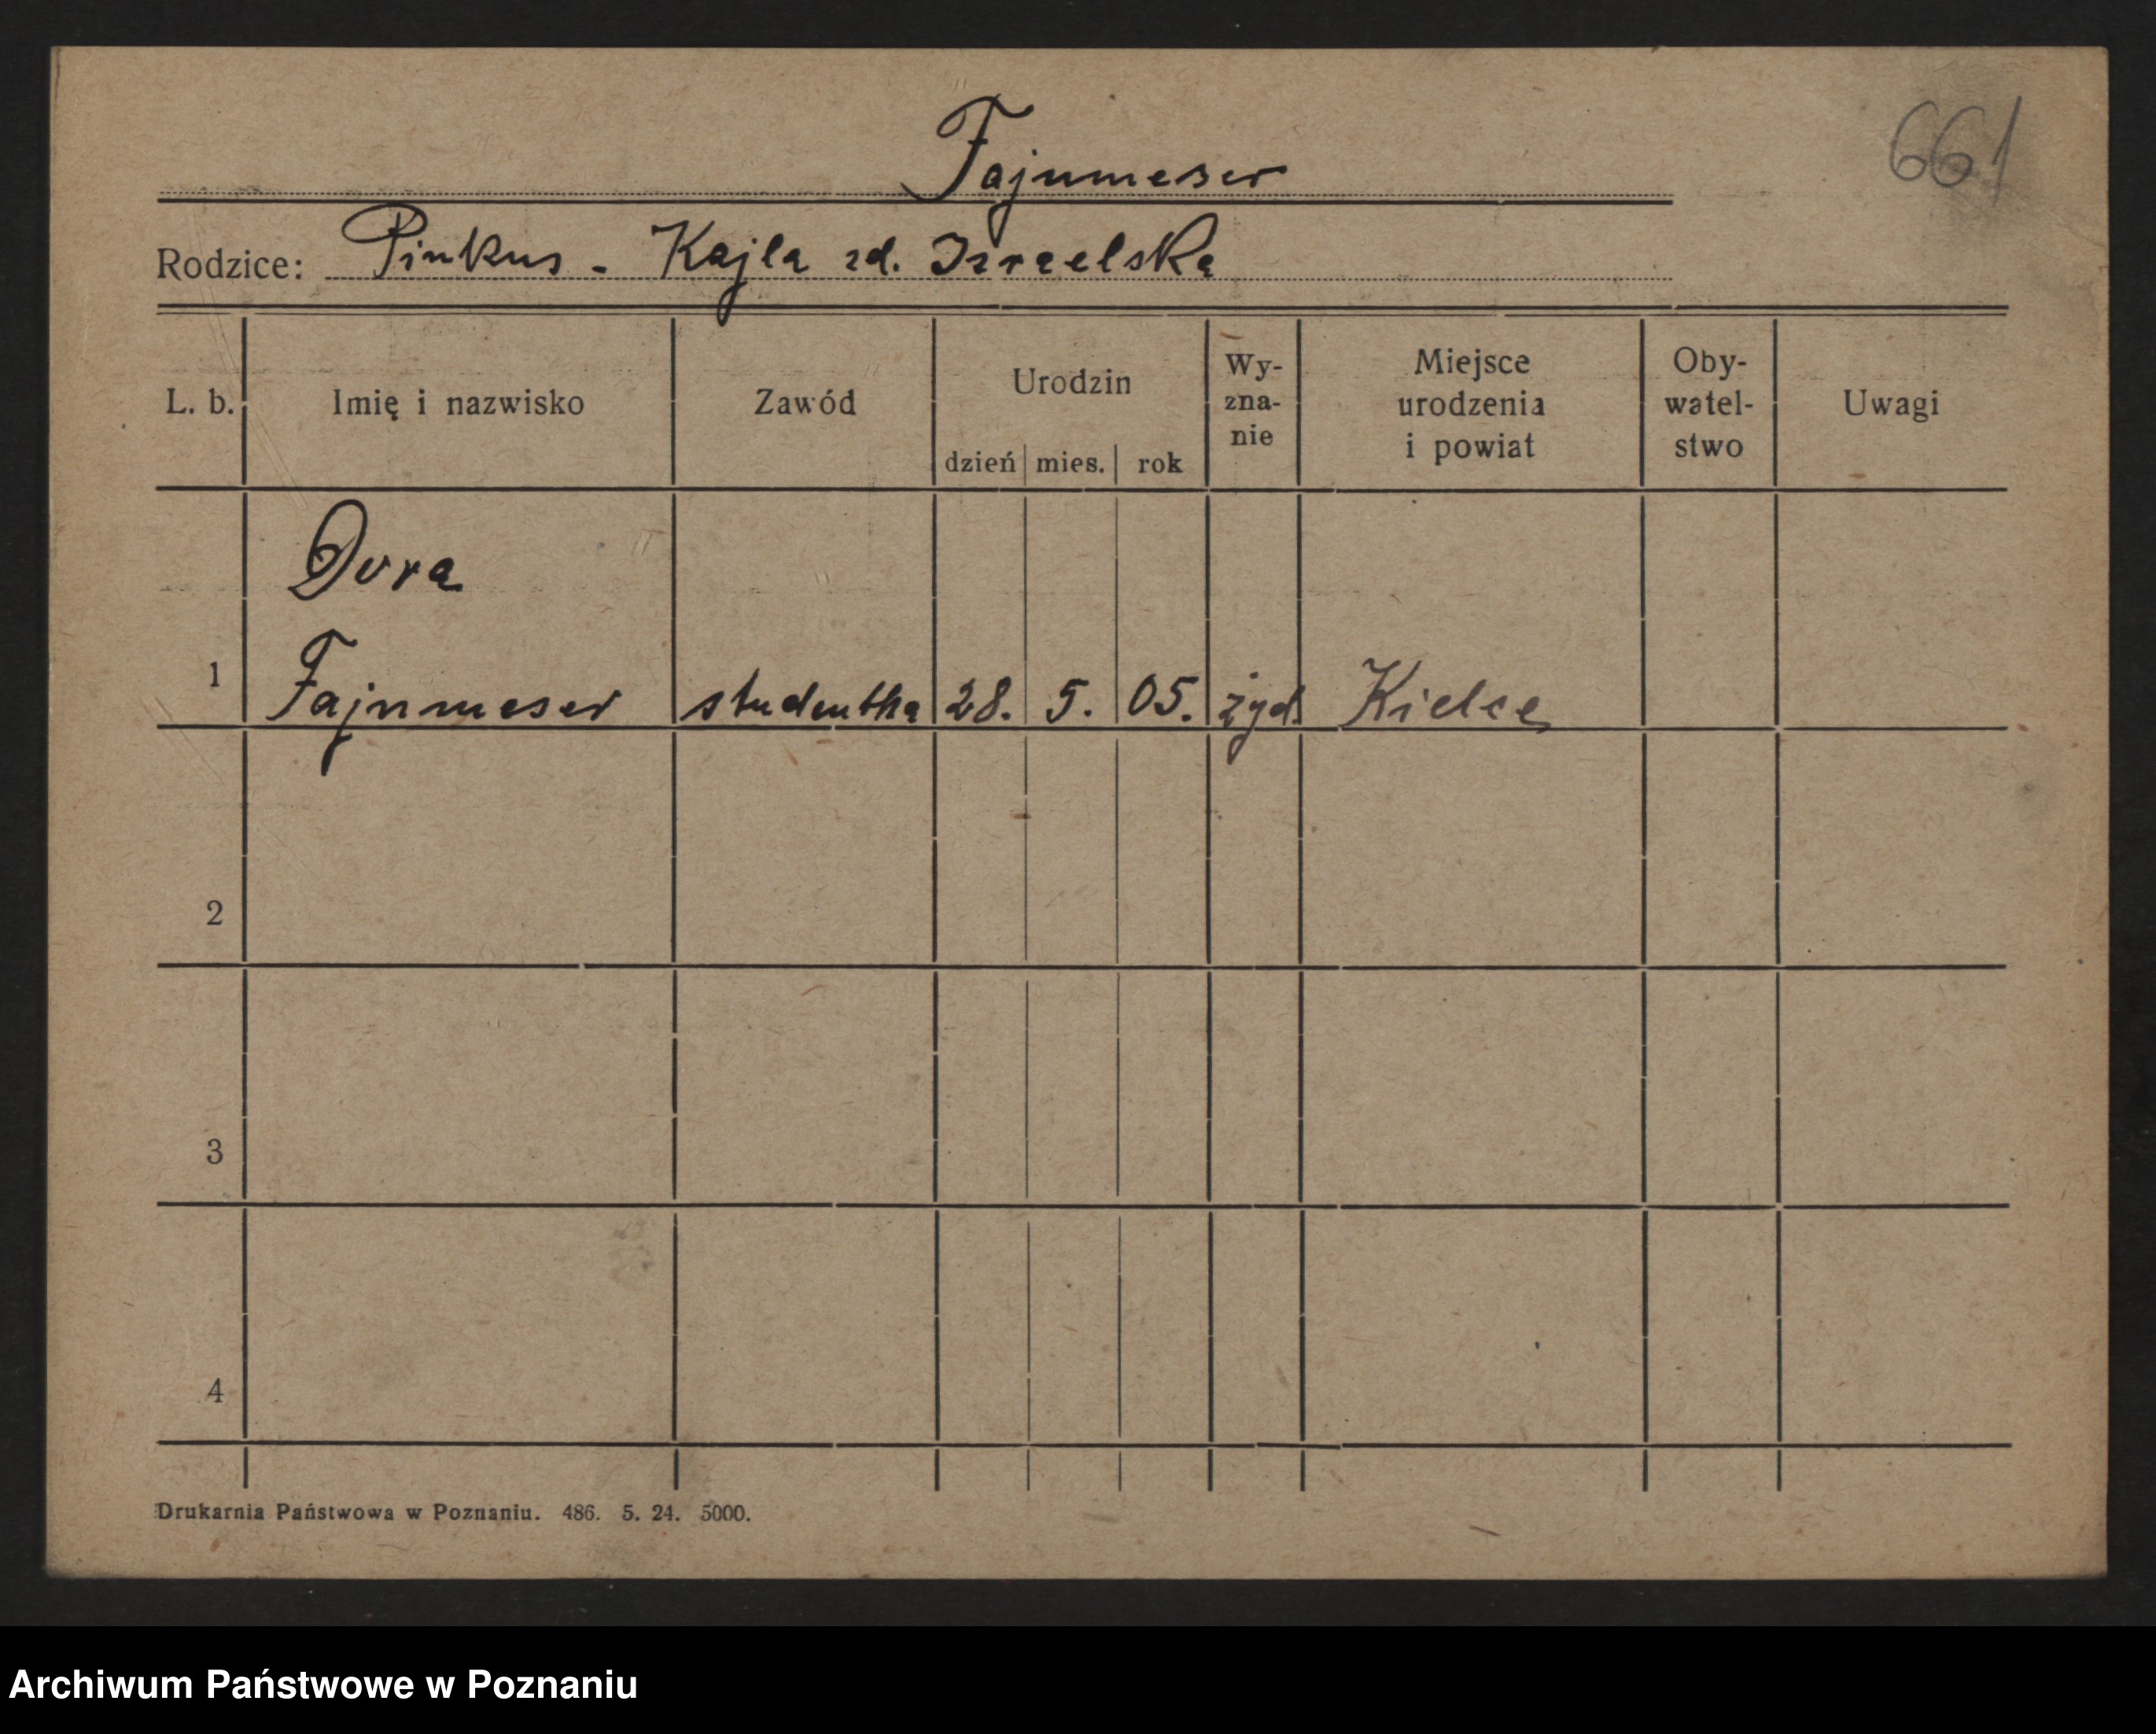 661
Fajnmeser
Rodzice: Pinkus - Kajla zd. Izraelska
L. b. Imię i nazwisko Zawód Urodzin dzień mies. rok Wy-zna-nie Miejsce urodzenia i powiat Oby-watel-stwo Uwagi
Dora
1 Fajnmeser studentka 28. 5. 05. żyd. Kielce
2
3
4
Drukarnia Państwowa w Poznaniu. 486. 5. 24. 5000.
Archiwum Państwowe w Poznaniu